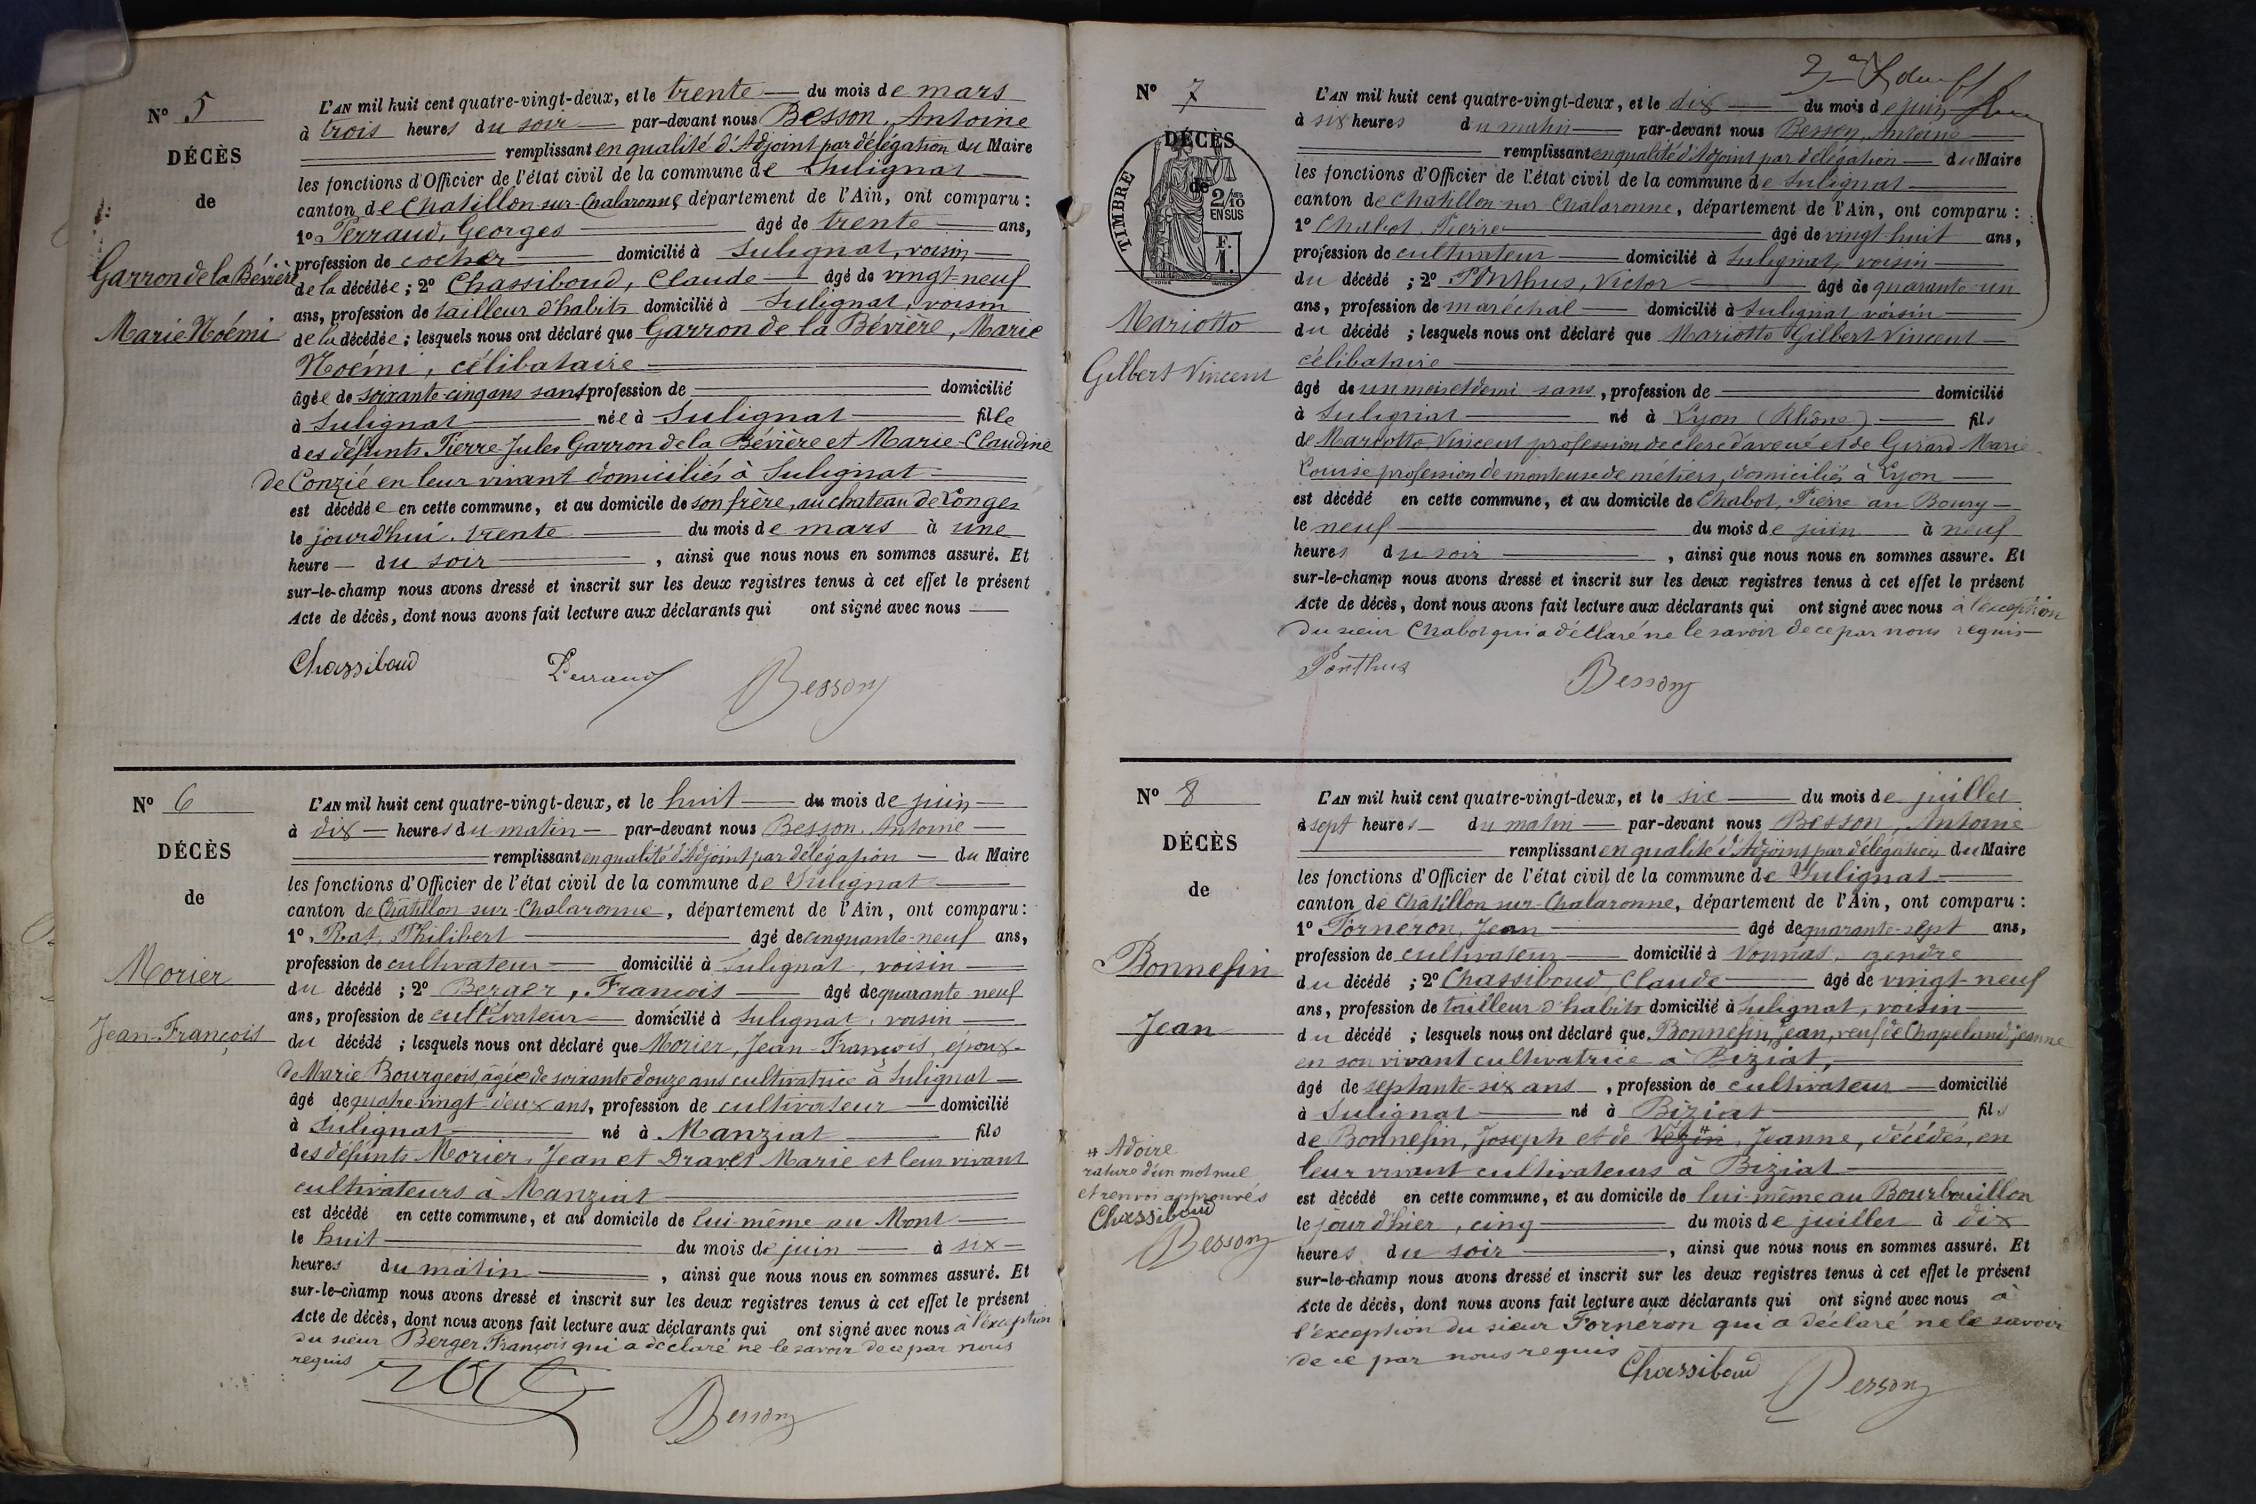 Nº 5
DÉCÈS
de
Garron de la Bévière
Marie Noémi
L'AN mil huit cent quatre-vingt-deux, et le trente du mois de mars
à trois heures du soir par-devant nous Besson, Antoine
remplissant en qualité d'Adjoint par délégation du Maire
les fonctions d'Officier de l'état civil de la commune de Sulignat
canton de Chatillon-sur-Chalaronne département de l'Ain, ont comparu :
1º Perraud, Georges âgé de trente ans,
profession de cocher domicilié à Sulignat, voisin
de la décédée ; 2º Chassiboud, Claude âgé de vingt-neuf
ans, profession de tailleur d'habits domicilié à Sulignat, voisin
de la décédée ; lesquels nous ont déclaré que Garron de la Bévière, Marie
Noémi, célibataire
âgée de soixante-cinq ans sans profession de domicilié
à Sulignat née à Sulignat fille
des défunts Pierre-Jules Garron de la Bévière et Marie-Claudine
de Conzié en leur vivant domiciliés à Sulignat
est décédée en cette commune, et au domicile de son frère, au chateau de Longes
le jourd'hui, trente du mois de mars à une
heure du soir , ainsi que nous nous en sommes assuré. Et
sur-le-champ nous avons dressé et inscrit sur les deux registres tenus à cet effet le présent
Acte de décès, dont nous avons fait lecture aux déclarants qui ont signé avec nous
Chassiboud Perraud Besson
Nº 6
DÉCÈS
de
Morier
Jean-François
L'AN mil huit cent quatre-vingt-deux, et le huit du mois de juin
à dix heures du matin par-devant nous Besson, Antoine
remplissant en qualité d'Adjoint par délégation du Maire
les fonctions d'Officier de l'état civil de la commune de Sulignat
canton de Châtillon sur-Chalaronne, département de l'Ain, ont comparu :
1º Rat, Philibert âgé de cinquante-neuf ans,
profession de cultivateur domicilié à Sulignat, voisin
du décédé ; 2º Berger, François âgé de quarante neuf
ans, profession de cultivateur domicilié à Sulignat, voisin
du décédé ; lesquels nous ont déclaré que Morier, Jean-François, époux
de Marie Bourgeois, âgée de soixante douze ans cultivatrice à Sulignat
âgé de quatre-vingt-deux ans, profession de cultivateur domicilié
à Sulignat né à Manziat fils
des défunts Morier, Jean et Dravet Marie et leur vivant
cultivateurs à Manziat
est décédé en cette commune, et au domicile de lui-même au Mont
le huit du mois de juin à six
heures du matin , ainsi que nous nous en sommes assuré. Et
sur-le-champ nous avons dressé et inscrit sur les deux registres tenus à cet effet le présent
Acte de décès, dont nous avons fait lecture aux déclarants qui ont signé avec nous à l'exception
du sieur Berger François qui a déclaré ne le savoir de ce par nous
requis
Rat Besson
Nº 7
DÉCÈS
de
TIMBRE
2/10
EN SUS
F.
1.
Mariotto
Gilbert Vincent
L'AN mil huit cent quatre-vingt-deux, et le dix du mois de juin
à six heures du matin par-devant nous Besson, Antoine
remplissant en qualité d'Adjoint par délégation du Maire
les fonctions d'Officier de l'état civil de la commune de Sulignat
canton de Chatillon sur Chalaronne, département de l'Ain, ont comparu :
1º Chabot, Pierre âgé de vingt-huit ans,
profession de cultivateur domicilié à Sulignat, voisin
du décédé ; 2º Ponthus, Victor âgé de quarante-un
ans, profession de maréchal domicilié à Sulignat voisin
du décédé ; lesquels nous ont déclaré que Mariotto Gilbert Vincent
célibataire
âgé de un mois et demi sans, profession de domicilié
à Sulignat né à Lyon (Rhône) fils
de Mariotto, Vincent profession de clerc d'avoué et de Girard Marie
Louise profession de monteuse de métiers, domiciliés à Lyon
est décédé en cette commune, et au domicile de Chabot, Pierre au Bourg
le neuf du mois de juin à neuf
heures du soir , ainsi que nous nous en sommes assuré. Et
sur-le-champ nous avons dressé et inscrit sur les deux registres tenus à cet effet le présent
Acte de décès, dont nous avons fait lecture aux déclarants qui ont signé avec nous à l'exception
du sieur Chabot qui a déclaré ne le savoir de ce par nous requis
Ponthus Besson
Nº 8
DÉCÈS
de
Bonnefin
Jean
L'AN mil huit cent quatre-vingt-deux, et le six du mois de juillet
à sept heures du matin par-devant nous Besson, Antoine
remplissant en qualité d'Adjoint par délégation du Maire
les fonctions d'Officier de l'état civil de la commune de Sulignat
canton de Châtillon-sur-Chalaronne, département de l'Ain, ont comparu :
1º Fornéron, Jean âgé de quarante-sept ans,
profession de cultivateur domicilié à Vonnas, gendre
du décédé ; 2º Chassiboud, Claude âgé de vingt-neuf
ans, profession de tailleur d'habits domicilié à Sulignat, voisin
du décédé ; lesquels nous ont déclaré que Bonnefin, Jean, veuf de Chapeland Jeanne
en son vivant cultivatrice à Biziat,
âgé de septante-six ans , profession de cultivateur domicilié
à Sulignat né à Biziat fils
de Bonnefin, Joseph et de Vézin, Jeanne, décédés, en
leur vivant cultivateurs à Biziat
est décédé en cette commune, et au domicile de lui-même au Bourbouillon
le jour d'hier, cinq du mois de juillet à dix
heures du soir , ainsi que nous nous en sommes assuré. Et
sur-le-champ nous avons dressé et inscrit sur les deux registres tenus à cet effet le présent
Acte de décès, dont nous avons fait lecture aux déclarants qui ont signé avec nous à
l'exception du sieur Fornéron qui a déclaré ne le savoir
de ce par nous requis
Chassiboud Besson
# Adoire
rature d'un mot nul
et renvoi approuvés
Chassiboud
Besson